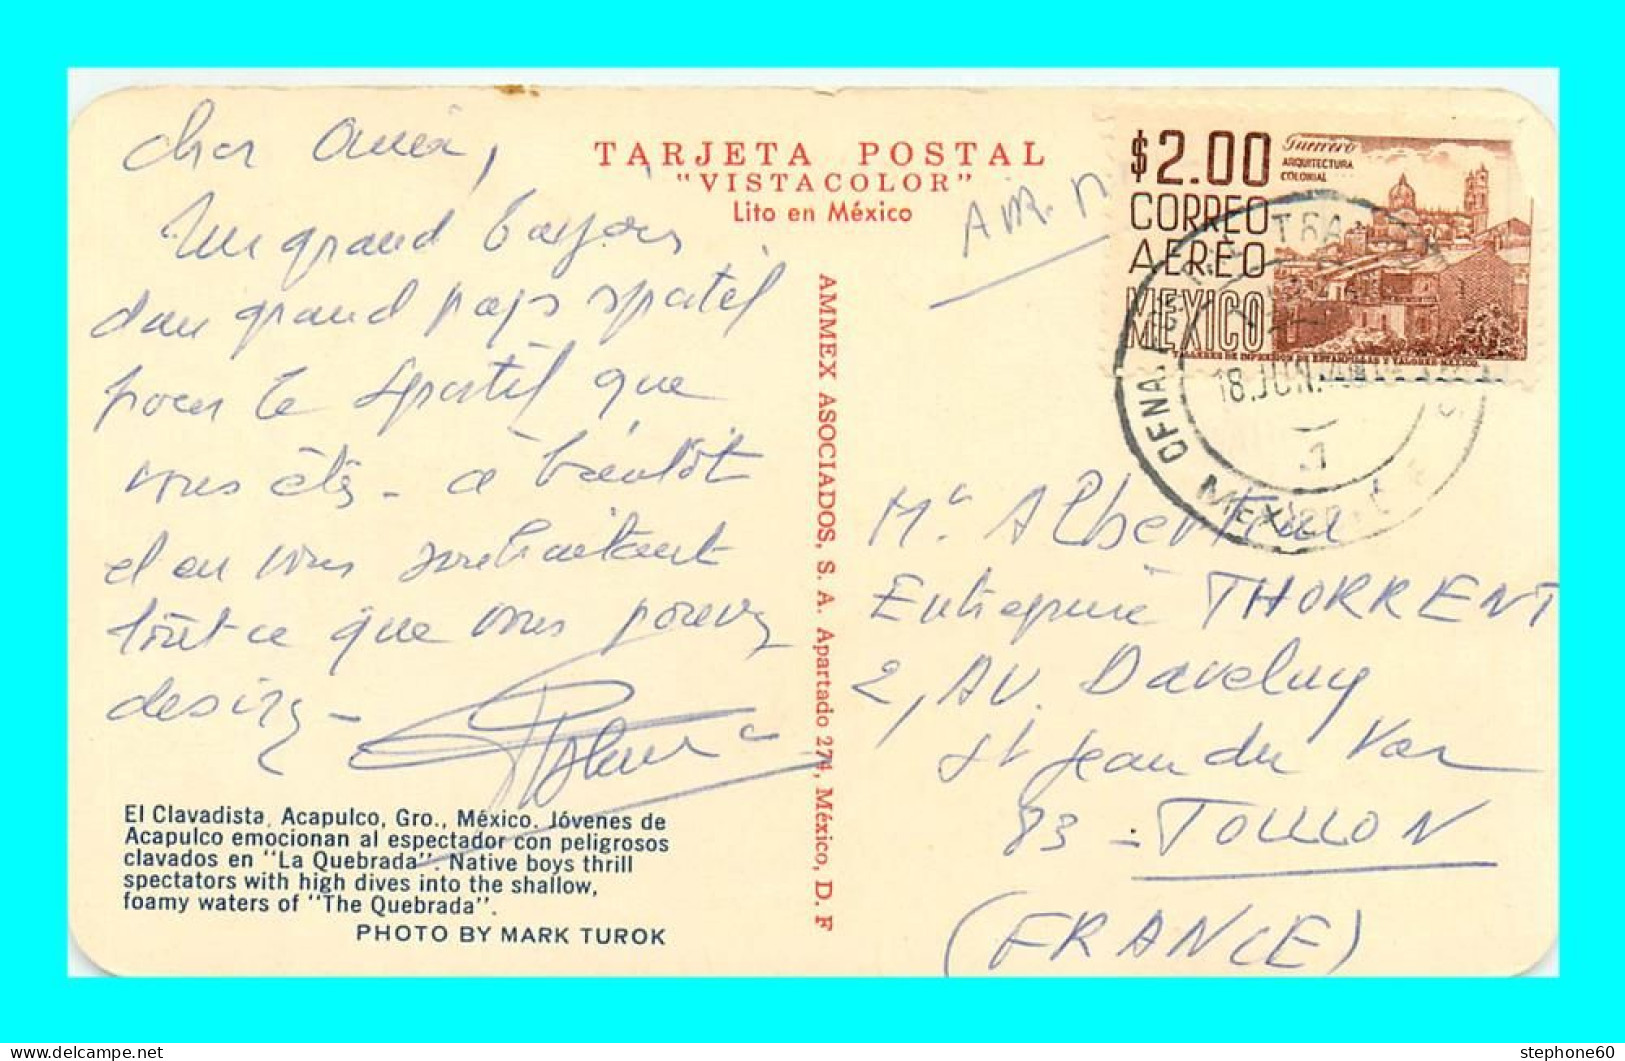 cher Ami,
Un grand bonjour
d'un grand pays sportif
pour le sportif que
vous êtes - a bientôt
et en vous souhaitant
tout ce que vous pouvez
desirez -
El Clavadista, Acapulco, Gro., México. Jóvenes de
Acapulco emocionan al espectador con peligrosos
clavados en "La Quebrada". Native boys thrill
spectators with high dives into the shallow,
foamy waters of "The Quebrada".
PHOTO BY MARK TUROK
TARJETA POSTAL
"VISTACOLOR"
Lito en México
AMMEX ASOCIADOS, S. A. Apartado 274, México, D. F
$2.00
CORREO
AEREO
MEXICO
Guerrero
ARQUITECTURA
COLONIAL
TALLERES DE IMPRESION DE ESTAMPILLAS Y VALORES-MEXICO.
OFNA.
18.JUN.
1
MEXICO
Mr. Albertini
Entreprise THORRENT
2, AV. Daveluy
St Jean du Var
83 - TOULON
(FRANCE)
stephone60